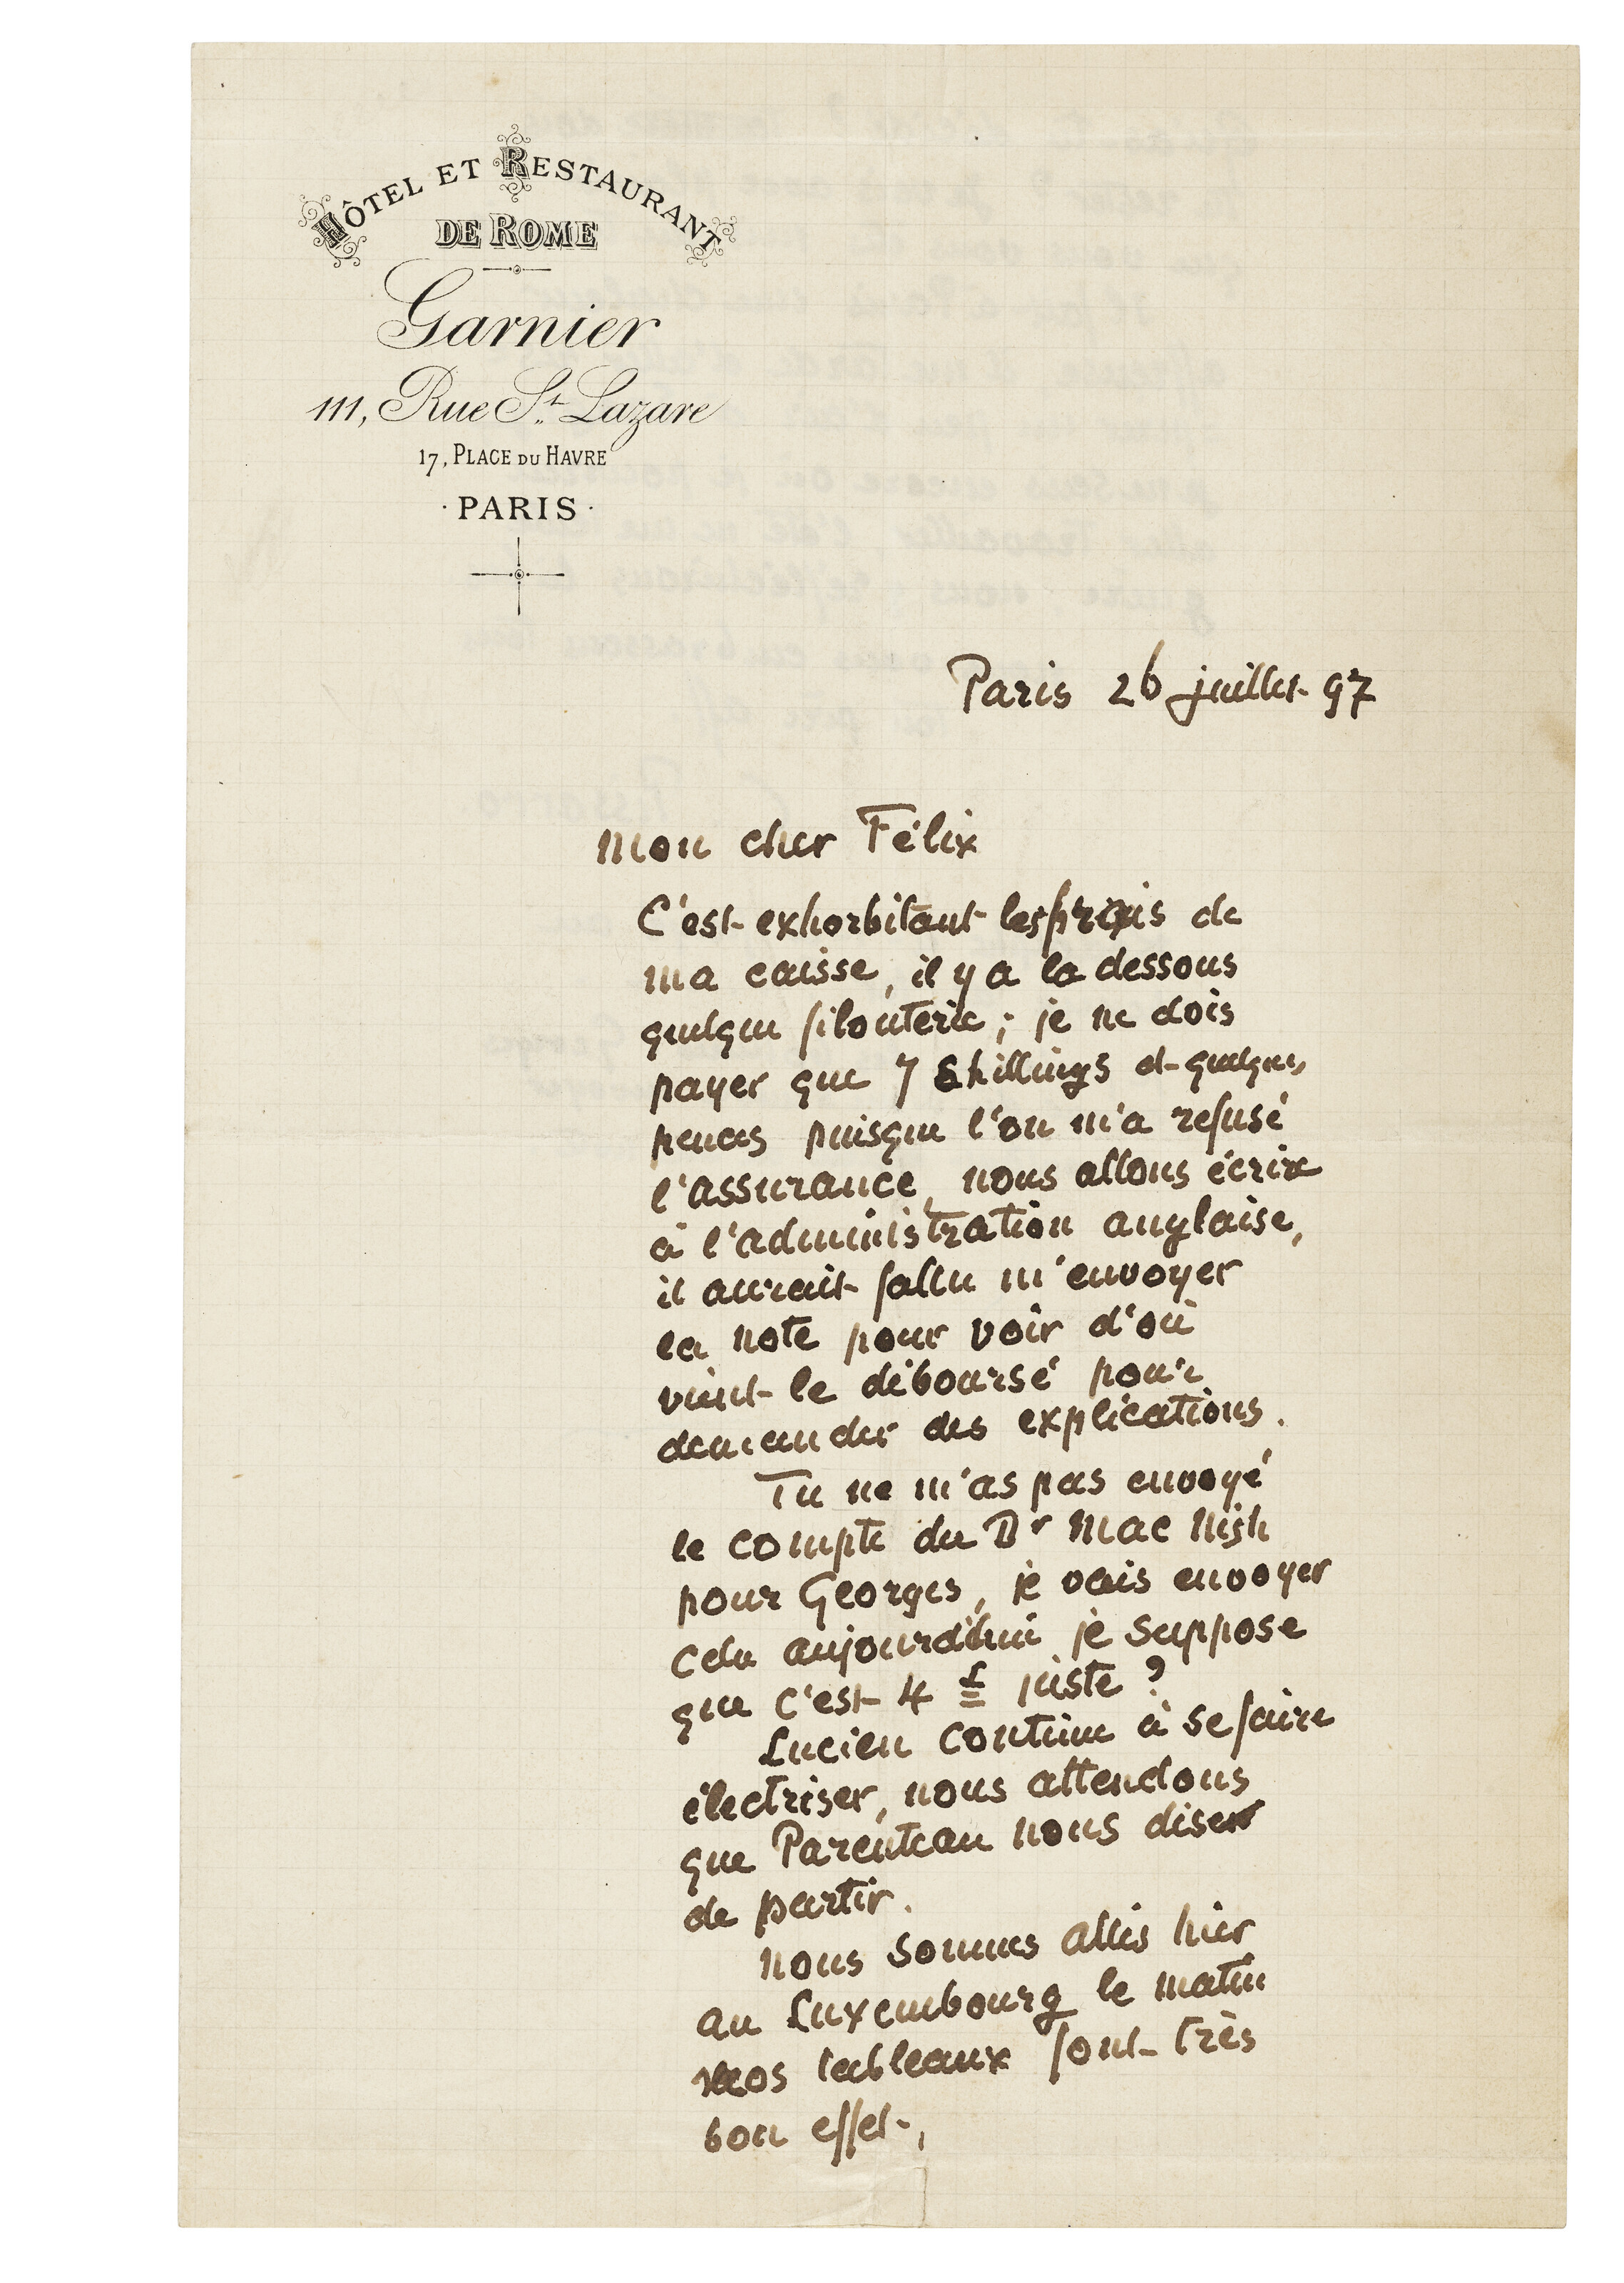 HÔTEL ET RESTAURANT
DE ROME
Garnier
111, Rue St. Lazare
17, PLACE DU HAVRE
· PARIS ·
Paris 26 juillet 97
Mon cher Félix
C'est exhorbitant les frais de
ma caisse, il y a la dessous
quelque filouterie ; je ne dois
payer que 7 Shillings et quelques
pences puisque l'on m'a refusé
l'assurance, nous allons écrire
à l'administration anglaise,
il aurait fallu m'envoyer
la note pour voir d'où
vient le déboursé pour
demander des explications.
Tu ne m'as pas envoyé
le compte du Dr Mac Nish
pour Georges, je vais envoyer
cela aujourd'hui je suppose
que c'est 4 £ juste ?
Lucien continue à se faire
électriser, nous attendons
que Parenteau nous dise
de partir.
Nous sommes allés hier
au Luxembourg le matin
mos tableaux font très
bon effet,